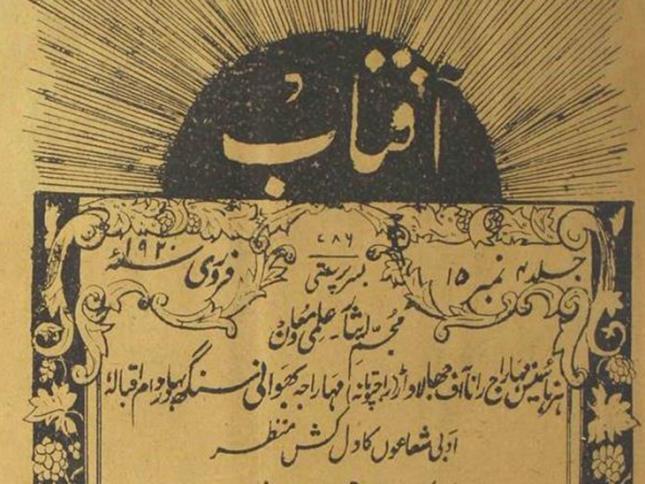 آفتاب
۷۸۶
جلد ۴ نمبر ۱۵
فروری سنہ ۱۹۲۰ء
بسرپرستی
مجسم ایثار علمی معاون
ہز ہائینس مہاراج رانا آف جھالاواڑ (راجپوتانہ) مہاراجہ بھوانی سنگھ بہادر دام اقبالہٗ
ادبی شعاعوں کا دل کش منظر